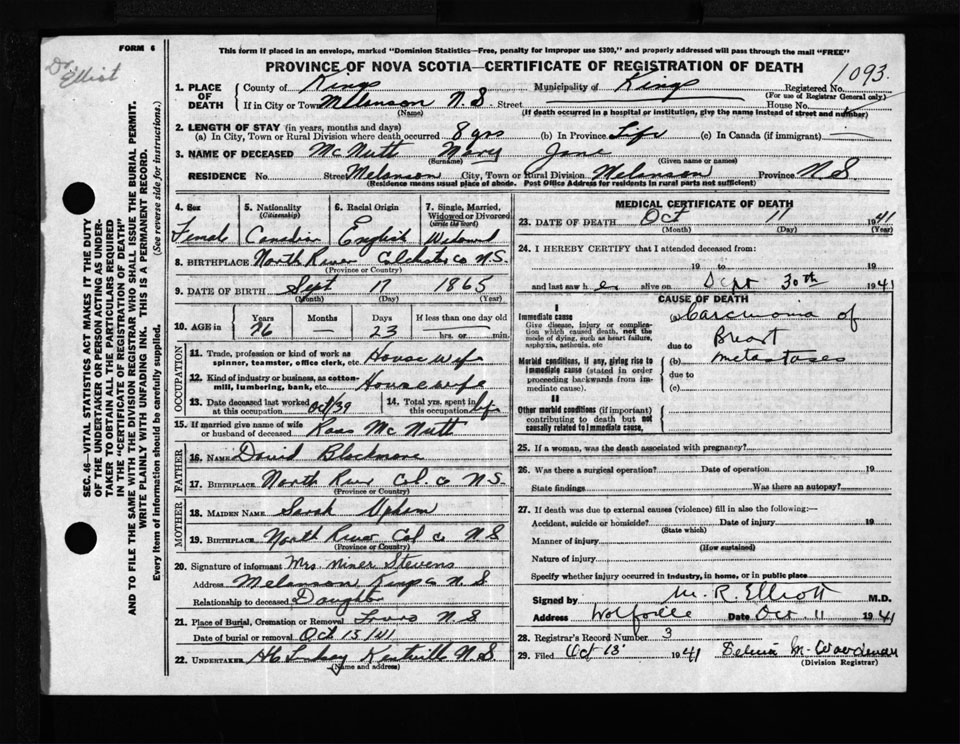 FORM 6
Dr. Elliot
This form if placed in an envelope, marked "Dominion Statistics—Free, penalty for improper use $300," and properly addressed will pass through the mail "FREE"
PROVINCE OF NOVA SCOTIA—CERTIFICATE OF REGISTRATION OF DEATH
1093
1. PLACE OF DEATH
County of Kings Municipality of Kings Registered No.
(For use of Registrar General only)
If in City or Town Melanson N.S. Street House No.
(Name) (If death occurred in a hospital or institution, give the name instead of street and number)
2. LENGTH OF STAY (in years, months and days)
(a) In City, Town or Rural Division where death occurred 8 yrs (b) In Province Life (c) In Canada (if immigrant)
3. NAME OF DECEASED McNutt Mary Jane
(Surname) (Given name or names)
RESIDENCE No. Street Melanson City, Town or Rural Division Melanson Province N.S.
(Residence means usual place of abode. Post Office Address for residents in rural parts not sufficient)
4. Sex 5. Nationality (Citizenship) 6. Racial Origin 7. Single, Married, Widowed or Divorced (write the word)
Female Canadian English Widowed
8. BIRTHPLACE North River Colchester Co N.S.
(Province or Country)
9. DATE OF BIRTH Sept 17 1865
(Month) (Day) (Year)
10. AGE in Years Months Days If less than one day old
76 — 23 hrs. or min.
OCCUPATION
11. Trade, profession or kind of work as spinner, teamster, office clerk, etc. House Wife
12. Kind of industry or business, as cotton-mill, lumbering, bank, etc. Housewife
13. Date deceased last worked at this occupation Oct/39 14. Total yrs. spent in this occupation life
15. If married give name of wife or husband of deceased Ross McNutt
FATHER
16. NAME David Blackmore
17. BIRTHPLACE North River Col. Co N.S.
(Province or Country)
MOTHER
18. MAIDEN NAME Sarah Upham
19. BIRTHPLACE North River Col Co N S
(Province or Country)
20. Signature of informant Mrs. Miner Stevens
Address Melanson Kings Co N.S
Relationship to deceased Daughter
21. Place of Burial, Cremation or Removal Truro N S
Date of burial or removal Oct 13/41
22. UNDERTAKER Kentville N.S.
(Name and address)
MEDICAL CERTIFICATE OF DEATH
23. DATE OF DEATH Oct 11 1941
(Month) (Day) (Year)
24. I HEREBY CERTIFY that I attended deceased from:
19 to 19
and last saw her alive on Sept 30th 1941
CAUSE OF DEATH
I
Immediate cause (a) Carcinoma of
Give disease, injury or complication which caused death, not the mode of dying, such as heart failure, asphyxia, asthenia, etc
due to Breast
Morbid conditions, if any, giving rise to immediate cause (stated in order proceeding backwards from immediate cause).
(b) metastases
due to
(c)
II
Other morbid conditions (if important) contributing to death but not causally related to immediate cause.
25. If a woman, was the death associated with pregnancy?
26. Was there a surgical operation? Date of operation 19
State findings Was there an autopsy?
27. If death was due to external causes (violence) fill in also the following:—
Accident, suicide or homicide? Date of injury 19
(State which)
Manner of injury
(How sustained)
Nature of injury
Specify whether injury occurred in industry, in home, or in public place
Signed by M. R. Elliott M.D.
Address Wolfville Date Oct 11 1941
28. Registrar's Record Number 3
29. Filed Oct 13 1941 M. Woodman
(Division Registrar)
SEC. 46—VITAL STATISTICS ACT MAKES IT THE DUTY OF THE UNDERTAKER OR PERSON ACTING AS UNDERTAKER TO OBTAIN ALL THE PARTICULARS REQUIRED IN THE "CERTIFICATE OF REGISTRATION OF DEATH" AND TO FILE THE SAME WITH THE DIVISION REGISTRAR WHO SHALL ISSUE THE BURIAL PERMIT.
WRITE PLAINLY WITH UNFADING INK. THIS IS A PERMANENT RECORD.
Every item of information should be carefully supplied. (See reverse side for instructions.)